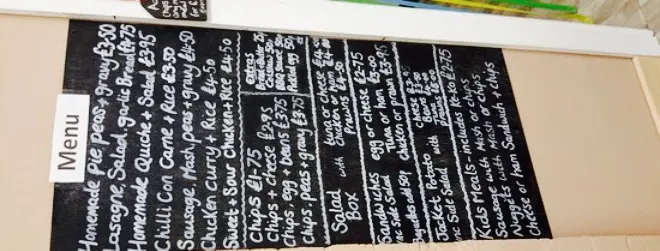 Menu
Homemade pie peas + gravy £3.50
Lasagne, Salad, garlic Bread £4.75
Homemade Quiche + Salad £3.95
Chilli Con Carne + Rice £3.50
Sausage, Mash, peas + gravy £4.50
Chicken curry + Rice £4.50
Sweet + Sour Chicken + Rice £4.50
Chips £1-75
Chips + cheese £2.95
Chips, egg + beans £3.75
Chips, peas + gravy £3.75
Extras
Bread + Butter
Coleslaw 50p
BBQ Sauce 50p
Pickled egg 50p
Salad Box with
tuna or cheese £4.00
chicken or ham
Prawns £4.50
Sandwiches egg or cheese £2.75
inc Side Salad Tuna or ham £3.00
chicken or prawn £3.95
Jacket Potato with
inc Side Salad
Cheese
Beans
Tuna
Prawns
Kids Meals - includes £2.75
Sausage with Mash or chips
Nuggets with Mash or chips
Cheese or ham Sandwich + chips